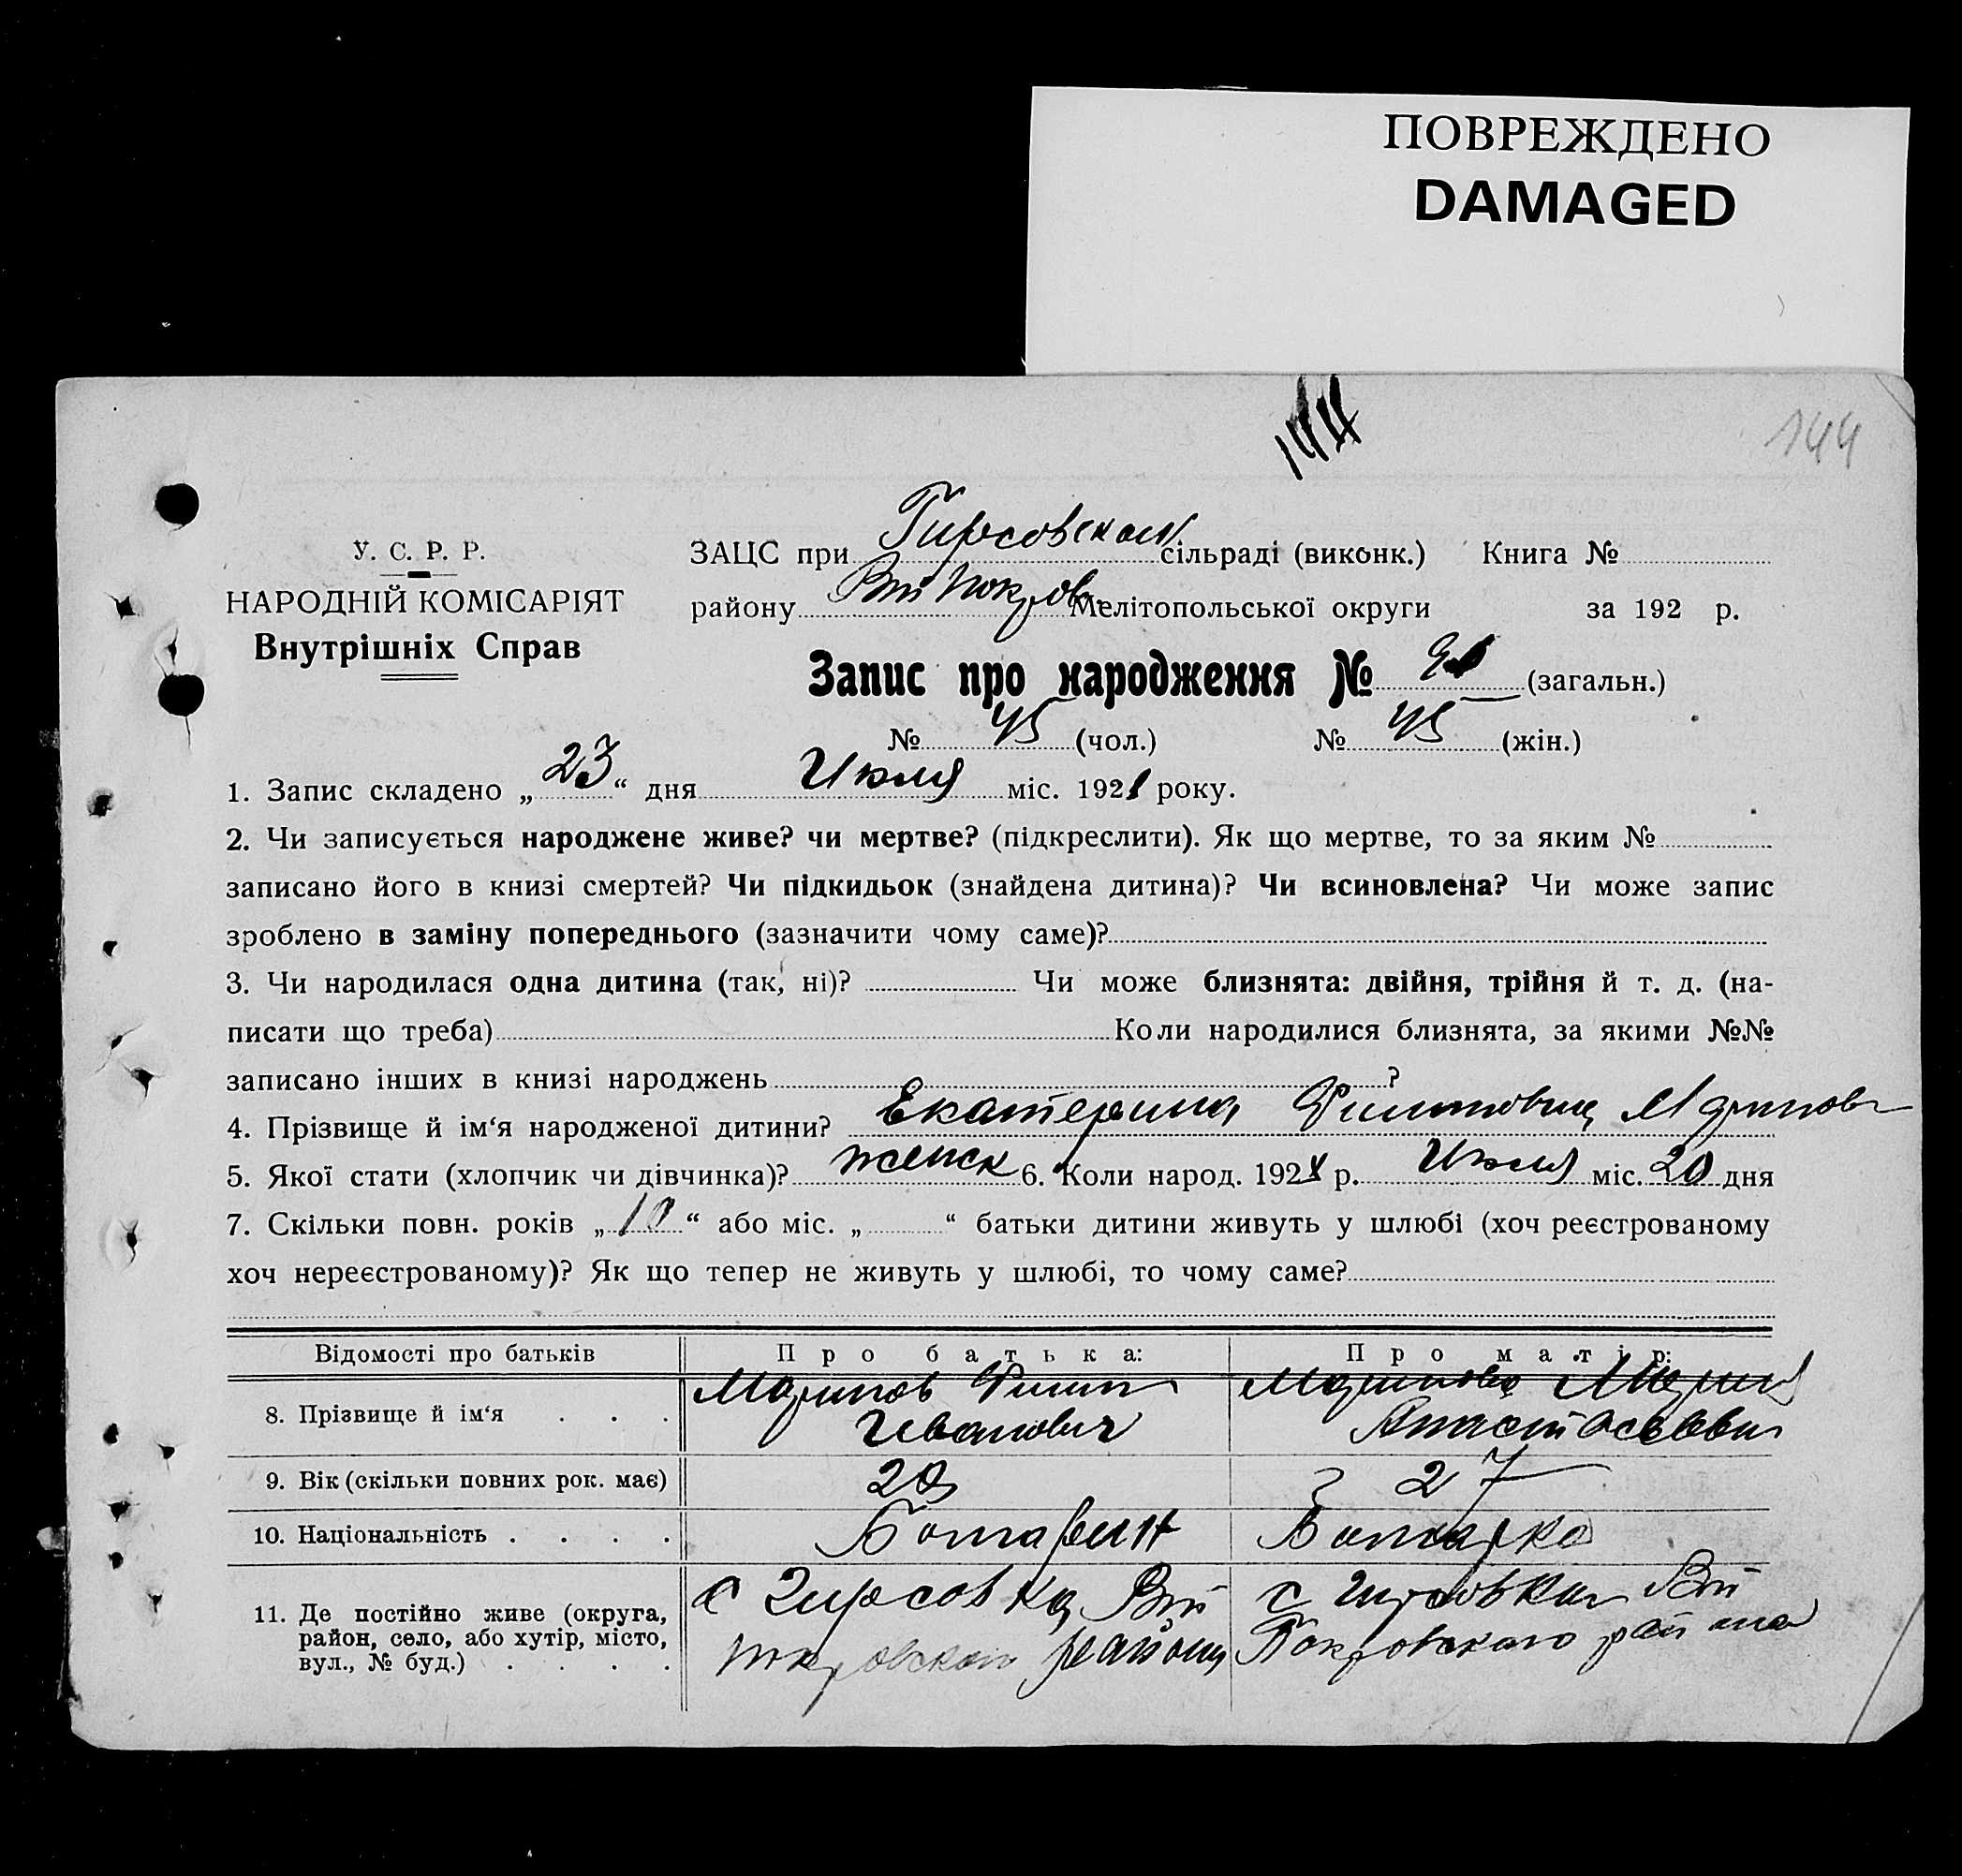 ПОВРЕЖДЕНО
DAMAGED
144
У. С. Р. Р.
НАРОДНІЙ КОМІСАРІЯТ
Внутрішніх Справ
ЗАЦС при Гирсовском сільраді (виконк.) Книга №
району Вт Покров Мелітопольської округи за 192 р.
Запис про народження № (загальн.)
№ 45 (чол.) № 45 (жін.)
1. Запис складено „23“ дня Июля міс. 1921 року.
2. Чи записується народжене живе? чи мертве? (підкреслити). Як що мертве, то за яким №
записано його в книзі смертей? Чи підкидьок (знайдена дитина)? Чи всиновлена? Чи може запис
зроблено в заміну попереднього (зазначити чому саме)?
3. Чи народилася одна дитина (так, ні)? Чи може близнята: двійня, трійня й т. д. (на-
писати що треба) Коли народилися близнята, за якими №№
записано інших в книзі народжень ?
4. Прізвище й ім‘я народженої дитини? Екатерина Филиповна Маринова
5. Якої стати (хлопчик чи дівчинка)? женск 6. Коли народ. 1921 р. Июля міс. 20 дня
7. Скільки повн. років „10“ або міс. „ “ батьки дитини живуть у шлюбі (хоч реєстрованому
хоч нереєстрованому)? Як що тепер не живуть у шлюбі, то чому саме?
Відомості про батьків Про батька: Про матір:
8. Прізвище й ім‘я . . . Маринов Филип Маринова Мария
Иванович
9. Вік (скільки повних рок. має) 27
10. Національність . . . . Болгарин Болгарка
11. Де постійно живе (округа,
район, село, або хутір, місто,
вул., № буд.) . . . .
с Гирсовка Вт с Гирсовка Вт
покровского района Покровского района